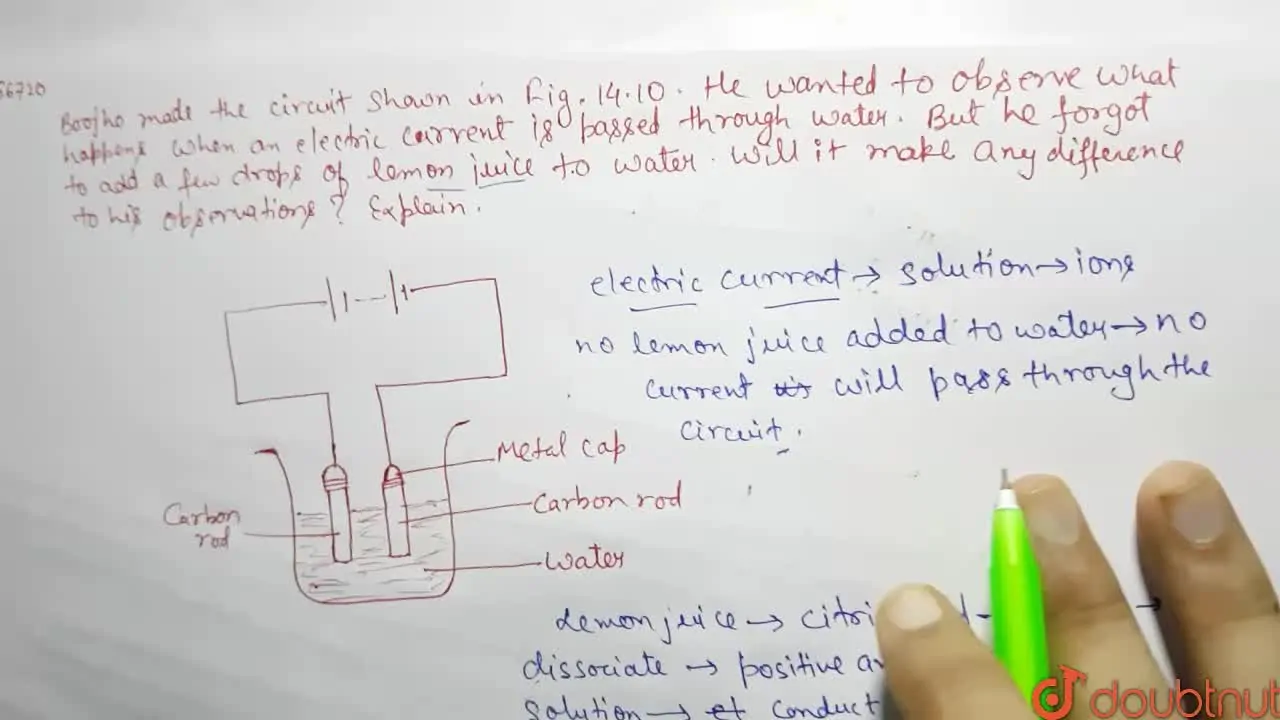 56720
Boojho made the circuit shown in Fig. 14.10. He wanted to observe what
happens when an electric current is passed through water. But he forgot
to add a few drops of lemon juice to water. Will it make any difference
to his observations? Explain.
electric current → solution → ions
no lemon juice added to water → no
current will pass through the
circuit.
Metal cap
Carbon rod
Carbon
rod
Water
lemon juice → citri
dissociate → positive a
solution → conduct
doubtnut